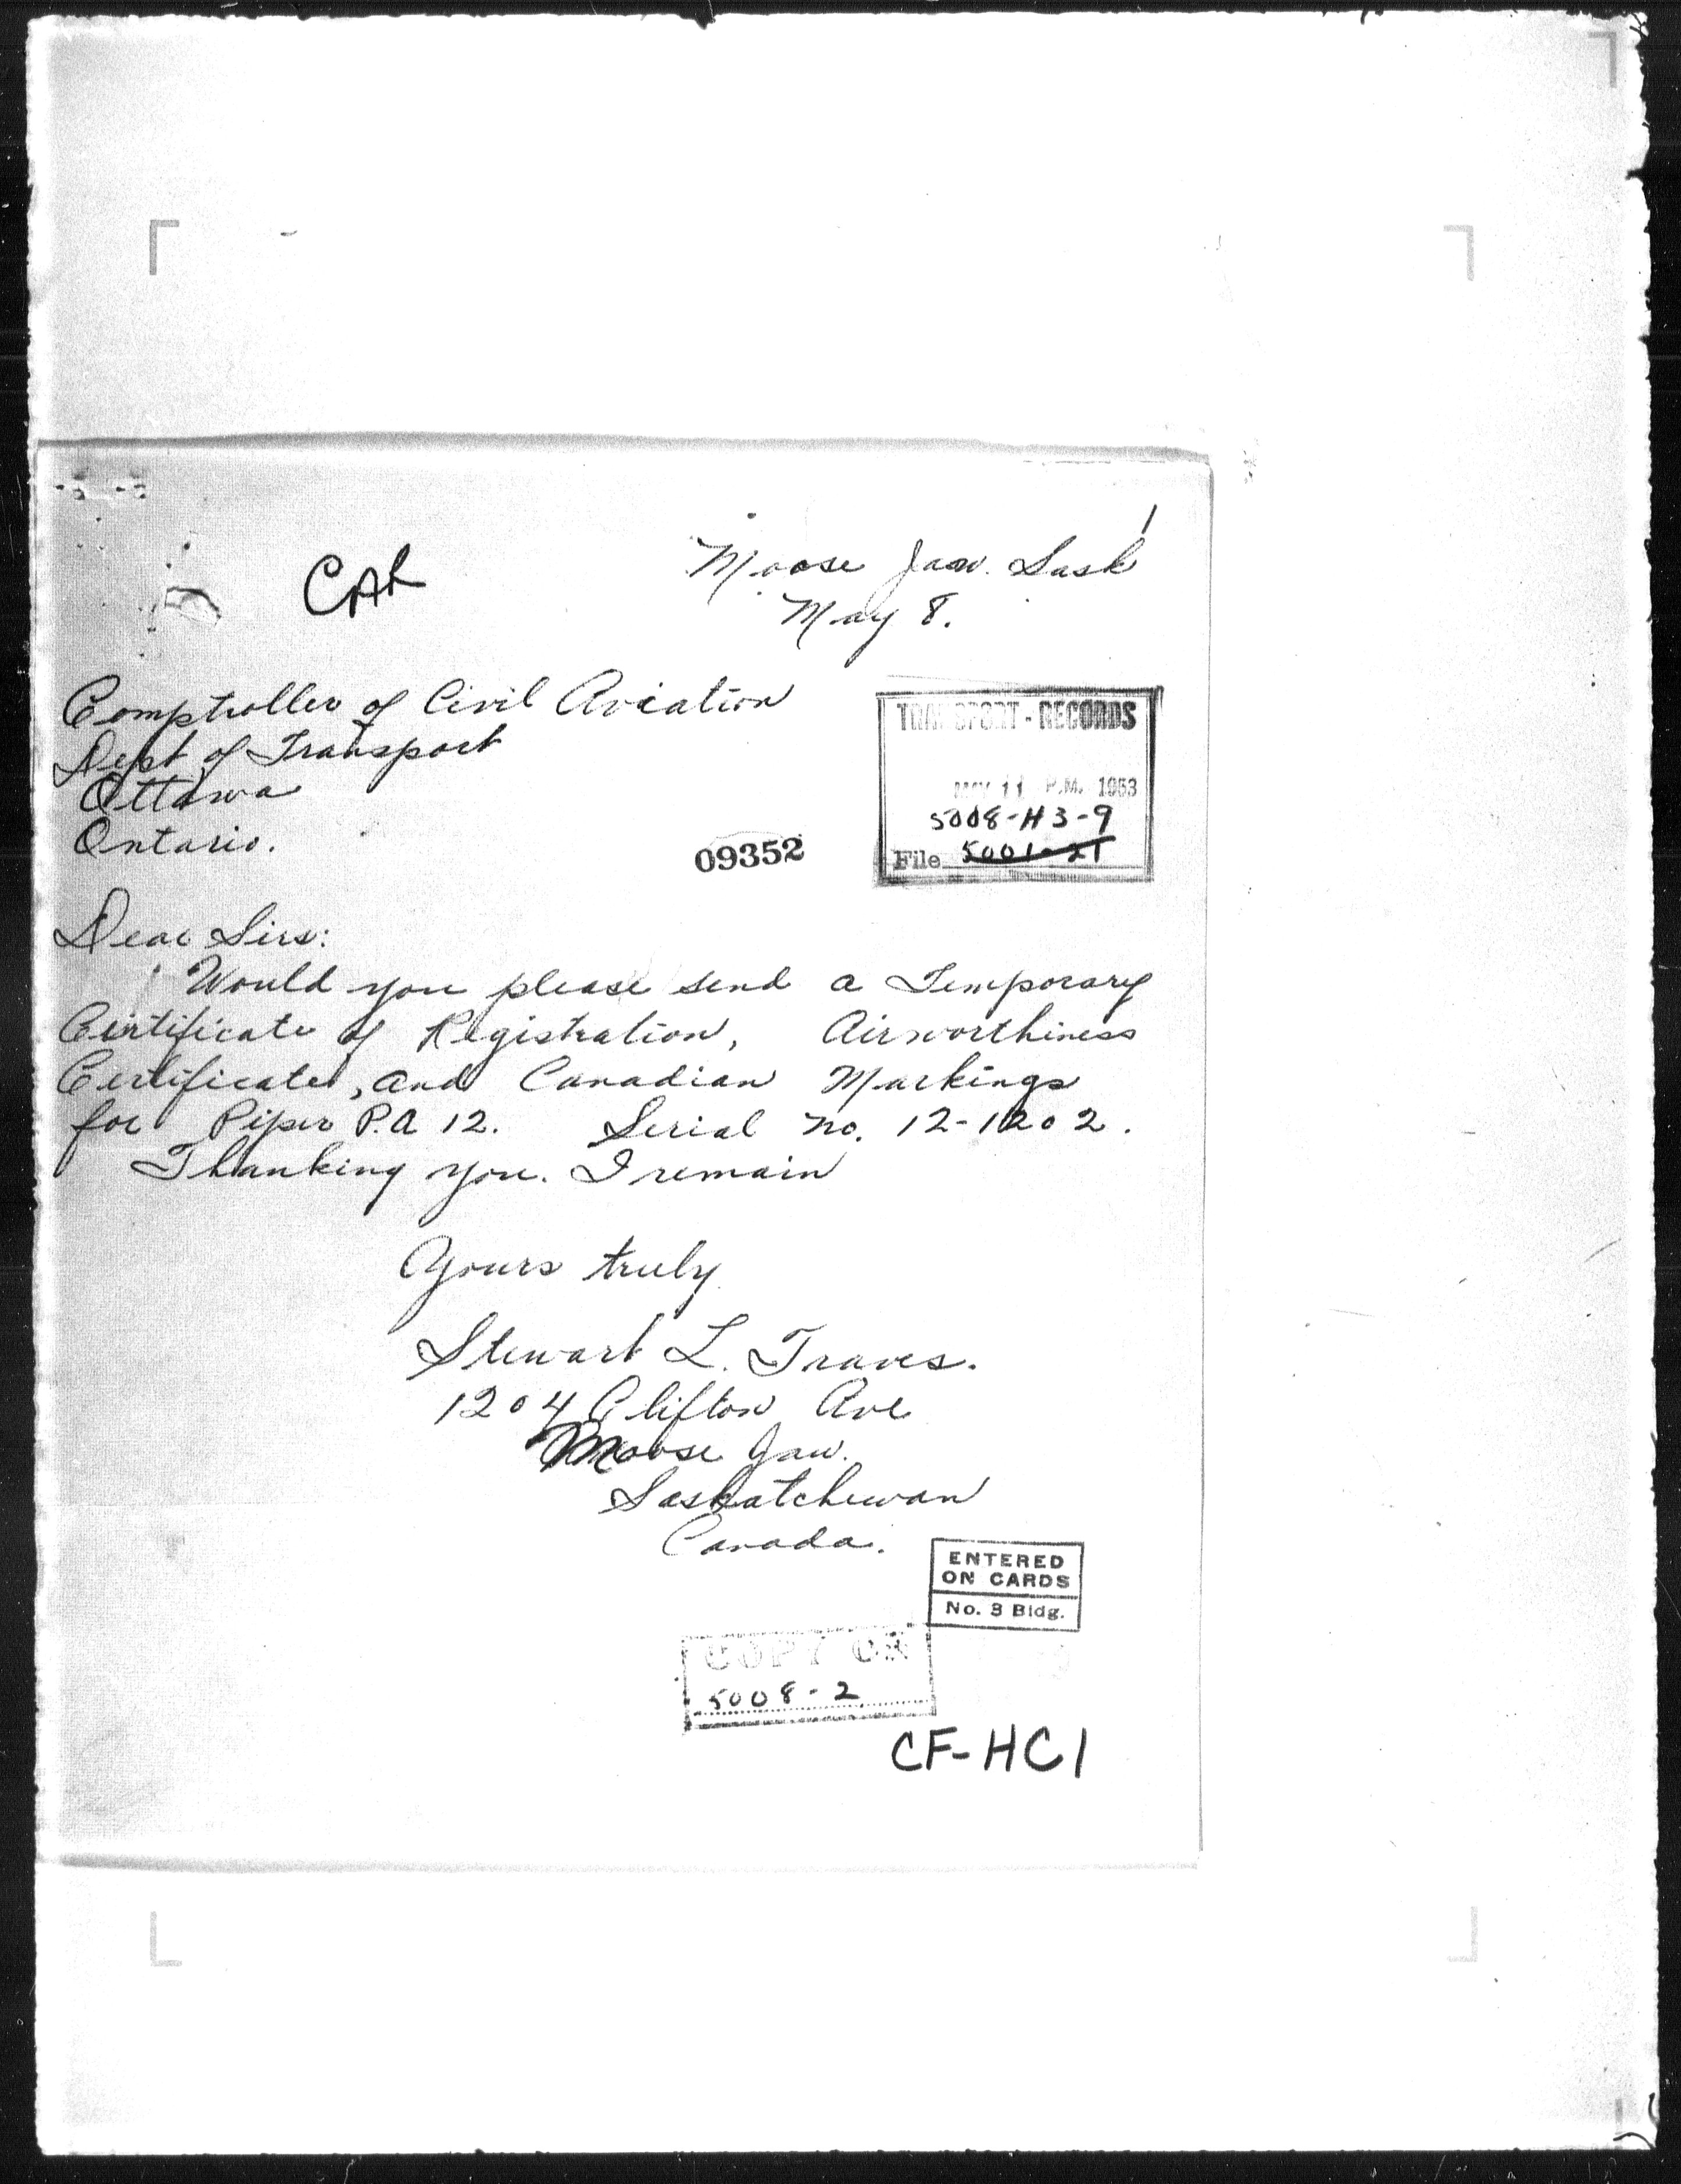 Moose Jaw. Sask
May 8.
Comptroller of Civil Aviation
Dept of Transport
Ottawa
Ontario.
TRANSPORT - RECORDS
MAY 11 P.M. 1953
5008-H3-9
File 5001-21
09352
Dear Sirs:
Would you please send a Temporary
Certificate of Registration, Airworthiness
Certificate, and Canadian Markings
for Piper P.A 12. Serial no. 12-1202.
Thanking you. I remain
Yours truly
Stewart L. Traves.
1204 Clifton Ave
Moose Jaw.
Saskatchewan
Canada.
ENTERED
ON CARDS
No. 3 Bldg.
COPY ON
5008-2
CF-HCI